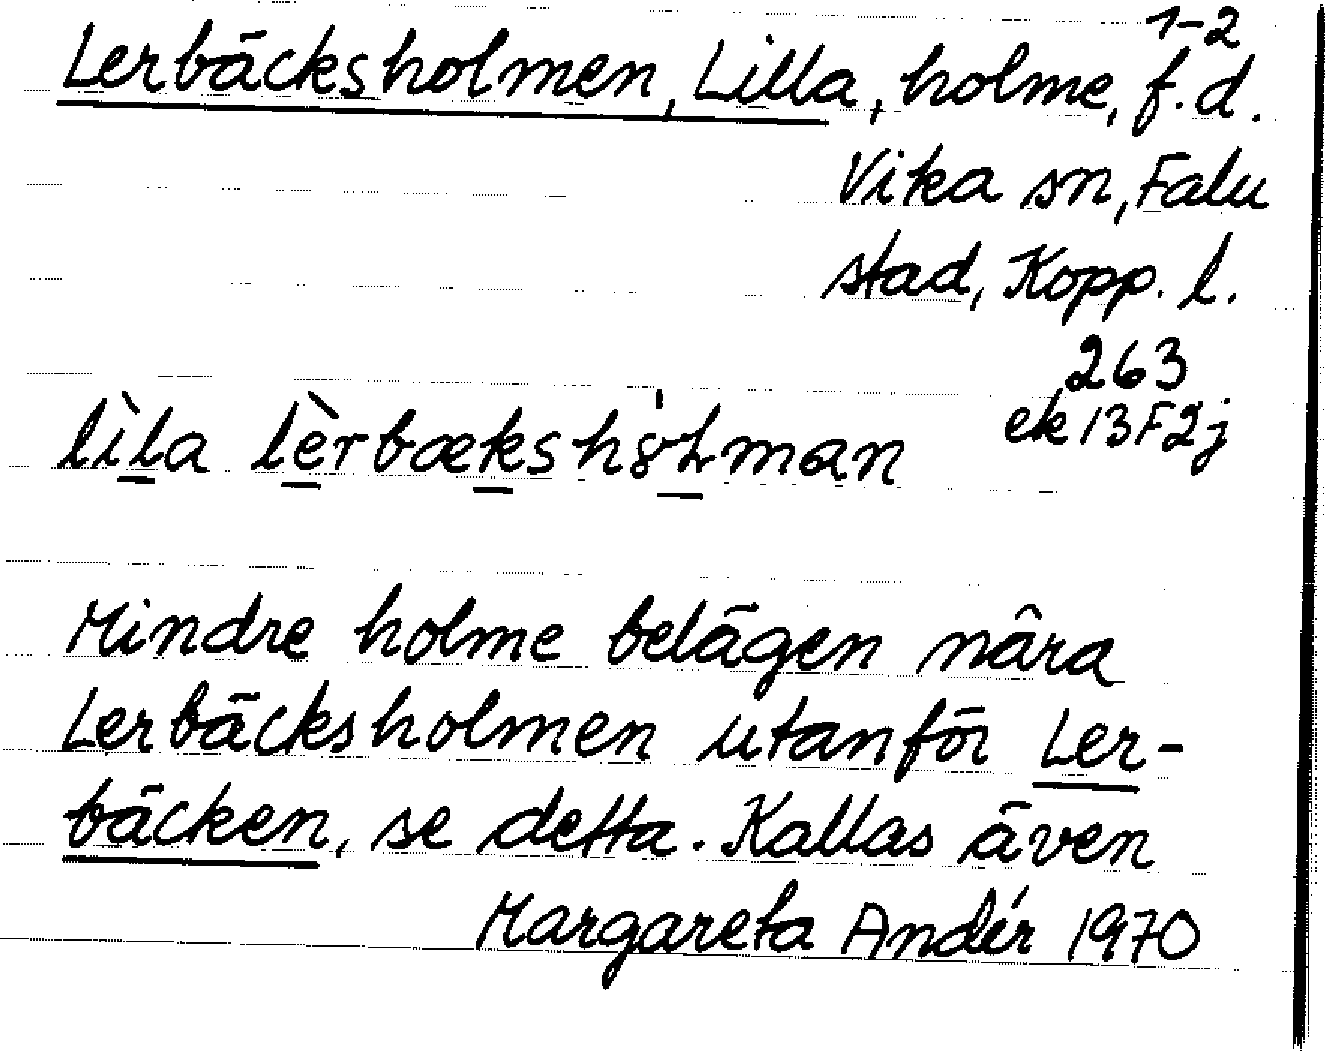 1-2
Lerbäcksholmen, Lilla, holme, f.d.
Vika sn, Falu
stad, Kopp. l.
263
ek 13F2j
lìla lèrbæksh8̍Lman
Mindre holme belägen nära
Lerbäcksholmen utanför Ler-
bäcken, se detta. Kallas även
Margareta Andér 1970